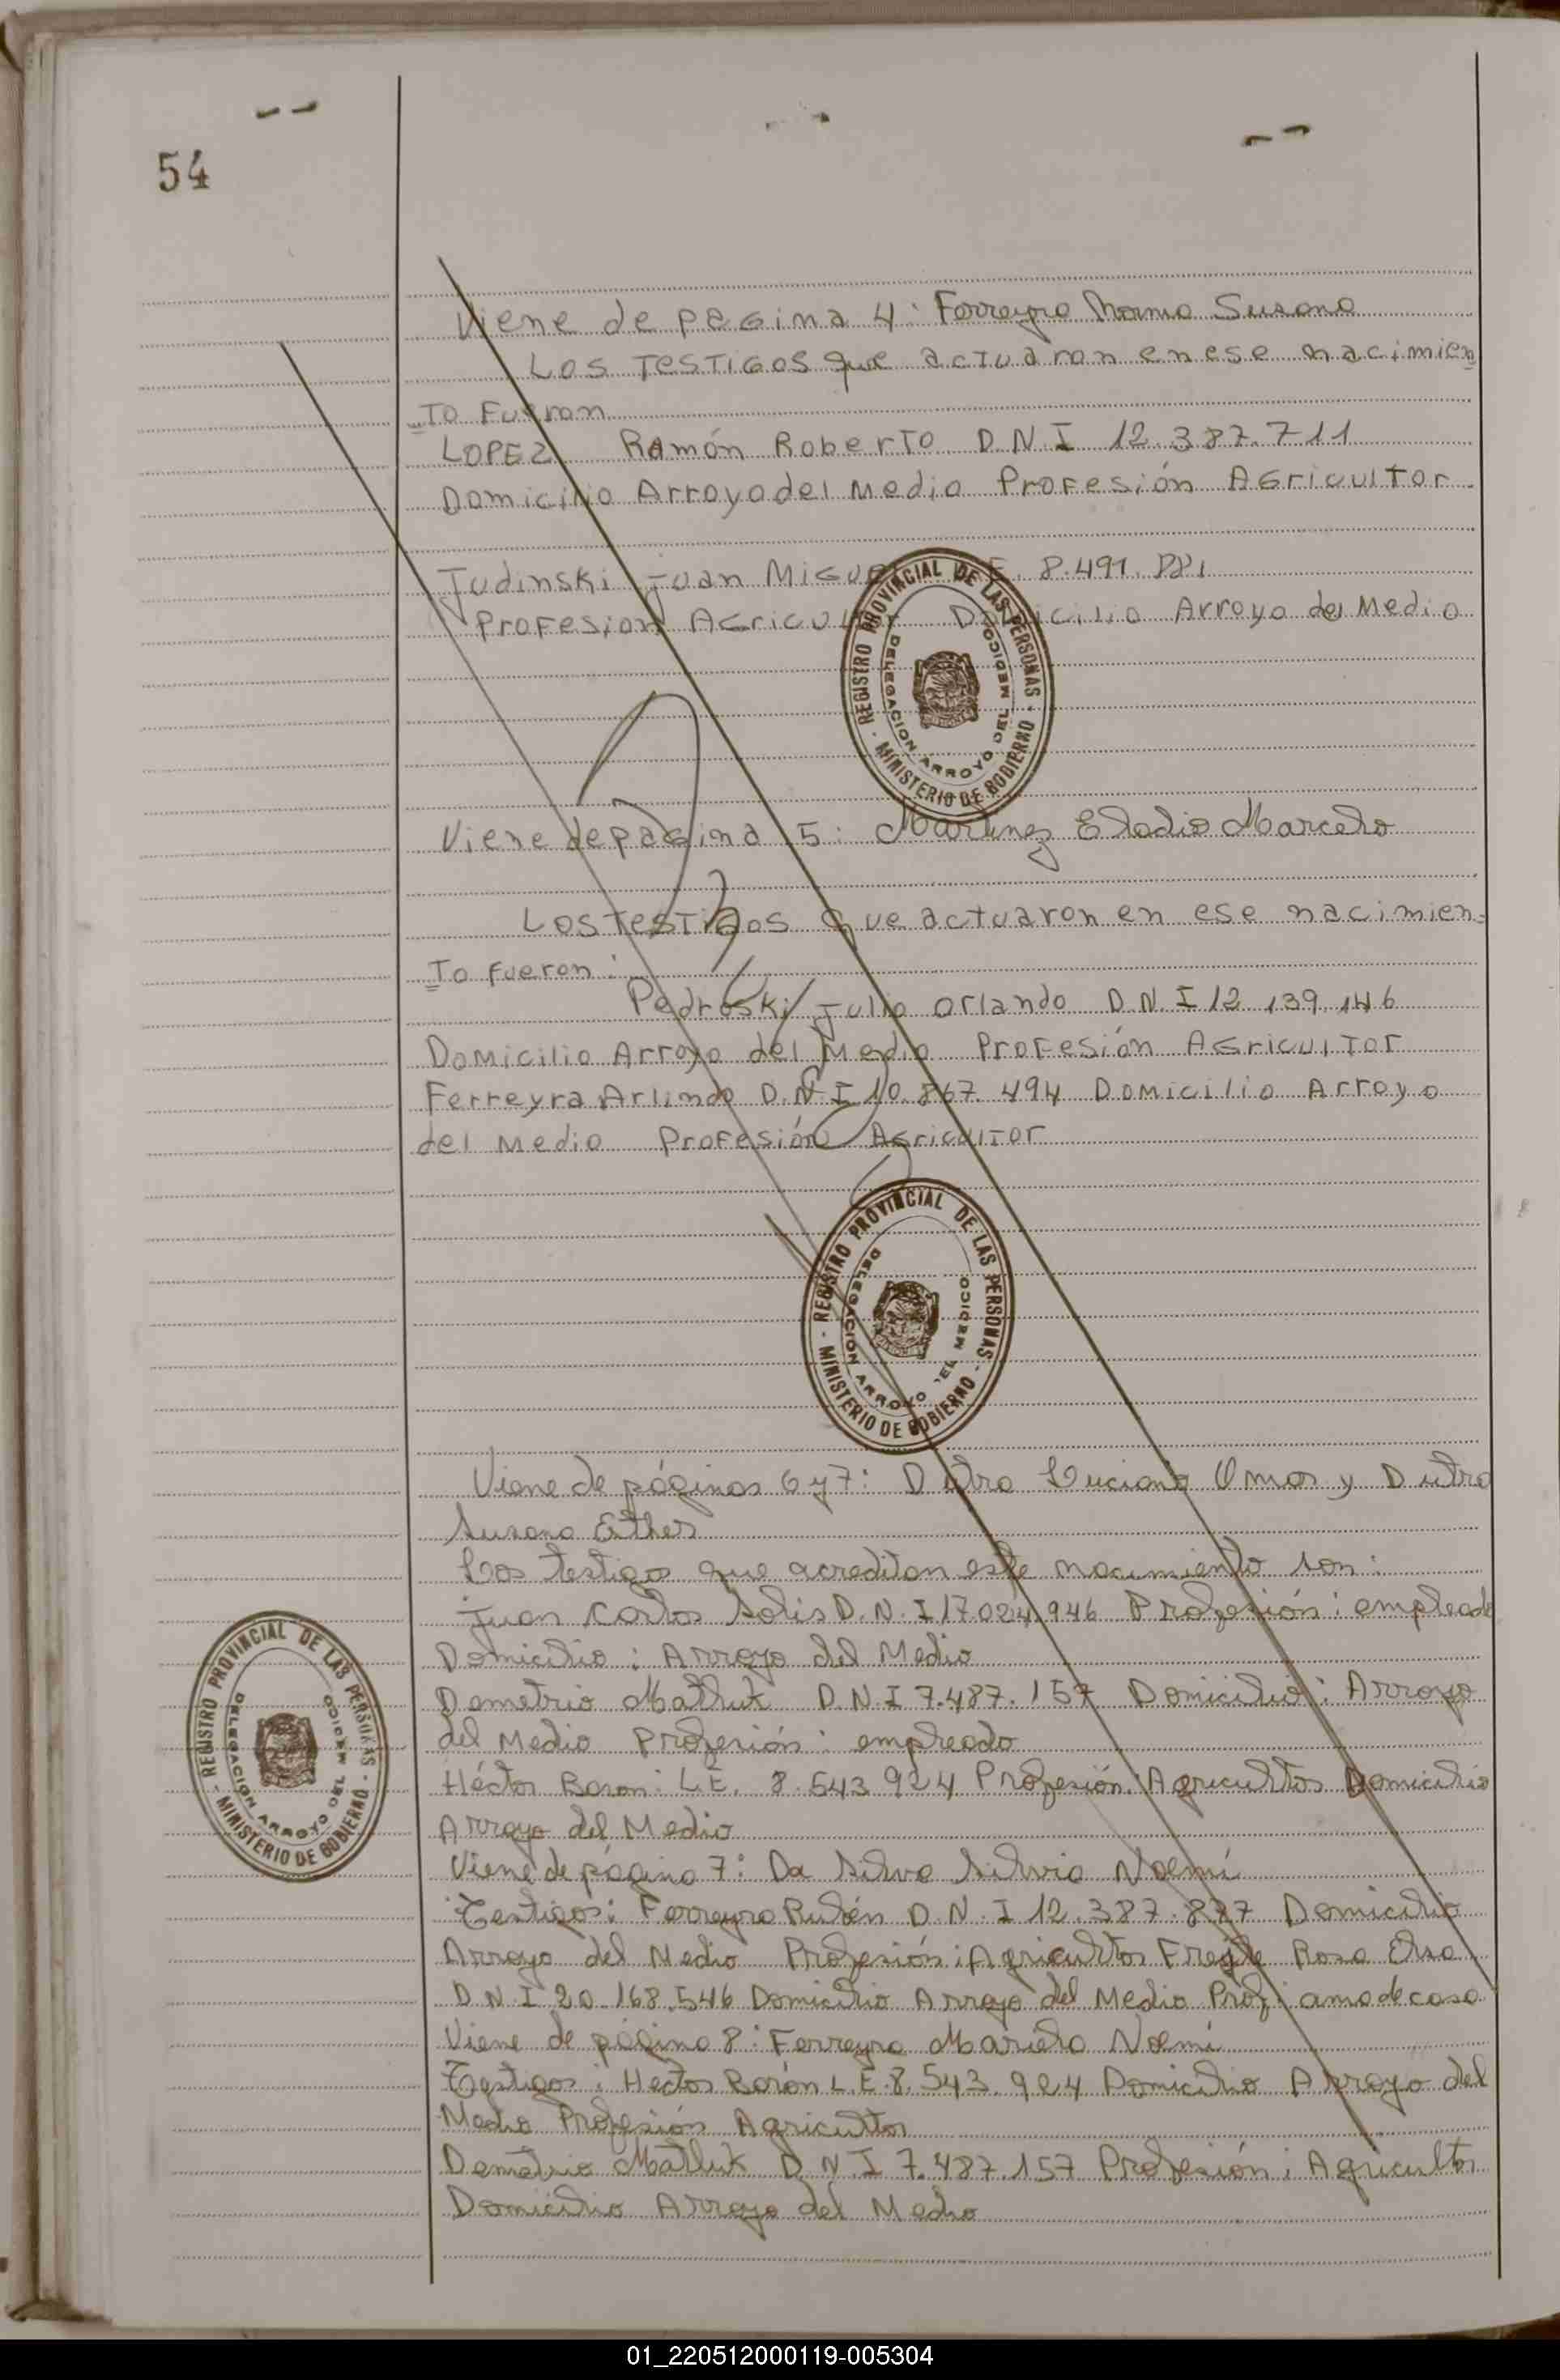 54
Viene de pagina 4: Ferreyra Norma Susana
Los TesTigos que acTuaron en ese nacimien
To Fueron
LOPEZ Ramón RoberTo D.N.I 12.387.711
Domicilio Arroyo del Medio Profesión Agricultor
Judinski Juan Miguel E. 8.491.881
Profesion Agricultor Domicilio Arroyo del Medio
REGISTRO PROVINCIAL DE LAS PERSONAS - MINISTERIO DE GOBIERNO -
DELEGACION ARROYO DEL MEDICO
Viene de página 5: Martinez Eladio Marcelo
Los Testigos que actuaron en ese nacimien=
To fueron:
Pedroski Julio Orlando D.N.I 12 139.146
Domicilio Arroyo del Medio Profesión Agricultor
Ferreyra Arlindo D.N.I 10.867.494 Domicilio Arroyo
del Medio Profesión Agricultor
REGISTRO PROVINCIAL DE LAS PERSONAS - MINISTERIO DE GOBIERNO -
DELEGACION ARROYO DEL MEDICO
Viene de páginas 6 y 7: Dutra Luciana Omar y Dutra
Susana Esther
Los testigos que acreditan este nacimiento son:
Juan Carlos Solis D.N.I 17.024.946 Profesión: empleado
Domicilio: Arroyo del Medio
Demetrio Matluk D.N.I 7.487.157 Domicilio: Arroyo
del Medio Profesión: empleado
Héctor Boron: L.E. 8.543.924 Profesión: Agricultor Domicilio
Arroyo del Medio
REGISTRO PROVINCIAL DE LAS PERSONAS - MINISTERIO DE GOBIERNO -
DELEGACION ARROYO DEL MEDICO
Viene de página 7: Da Silva Silvia Noemí
Testigos: Ferreyra Rubén D.N.I 12.387.877 Domicilio
Arroyo del Medio Profesión: Agricultor Freyle Rosa Elsa
D.N.I 20.168.546 Domicilio Arroyo del Medio Prof: ama de casa
Viene de página 8: Ferreyra Mariela Noemí
Testigos: Hector Borón L.E. 8.543.924 Domicilio Arroyo del
Medio Profesión Agricultor
Demetrio Matluk D.N.I 7.487.157 Profesión: Agricultor
Domicilio Arroyo del Medio
01_220512000119-005304